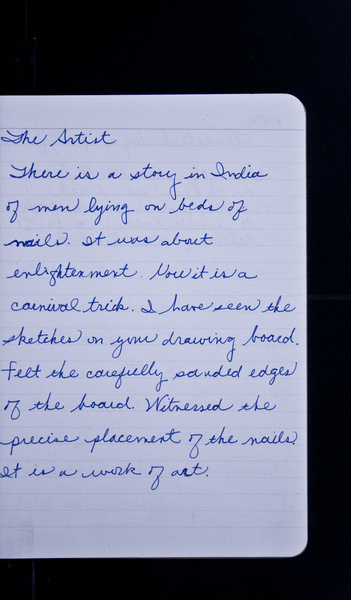 The Artist
There is a story in India
of men lying on beds of
nails. It was about
enlightenment. Now it is a
carnival trick. I have seen the
sketches on your drawing board.
Felt the carefully sanded edges
of the board. Witnessed the
precise placement of the nails.
It is a work of art.